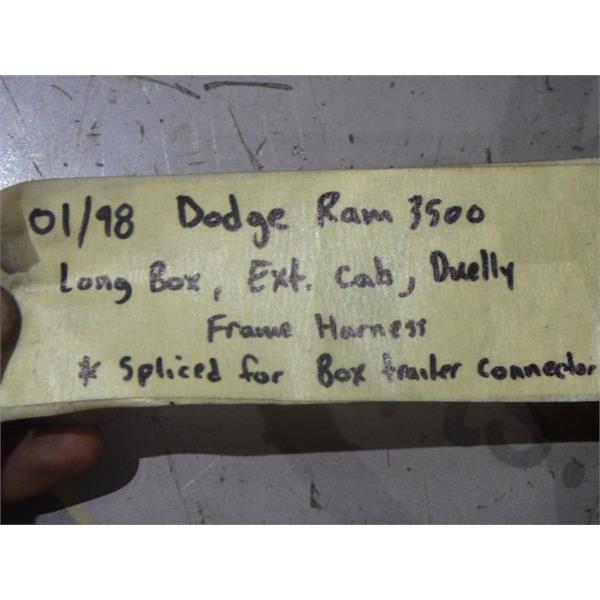 01/98 Dodge Ram 3500
Long Box, Ext. Cab, Duelly
Frame Harness
* Spliced for Box trailer connector